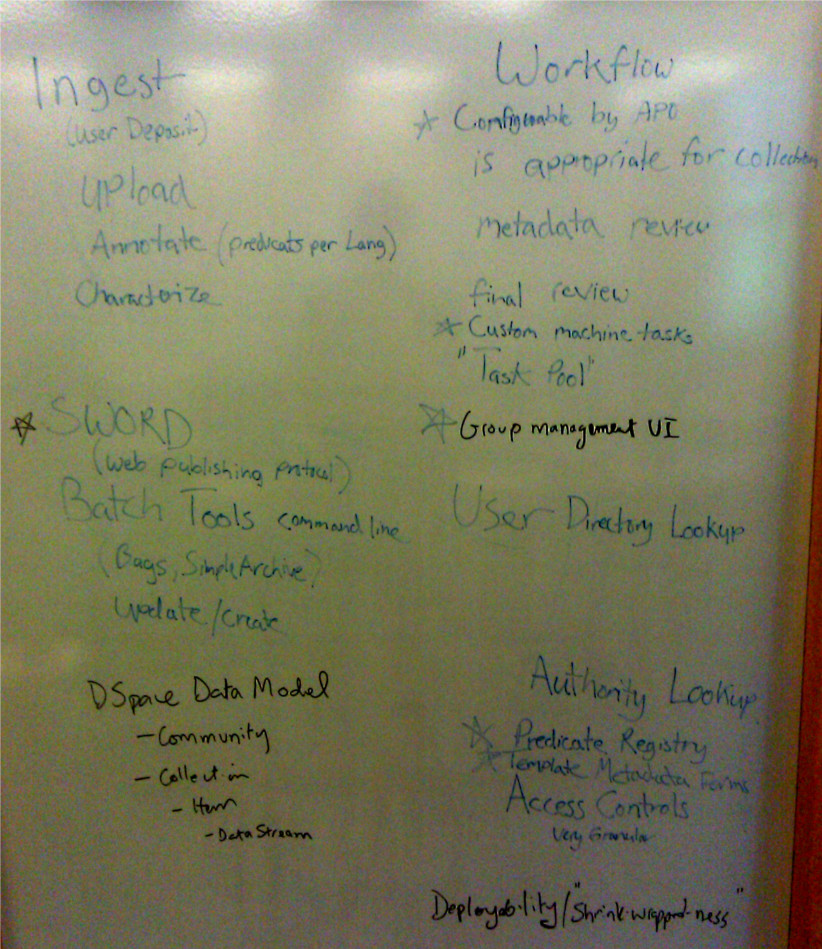 Ingest
(User Deposit)
Upload
Annotate (predicats per Lang)
Characterize
☆ SWORD
(web publishing protocol)
Batch Tools command line
(Bags, SimpleArchive)
Update/Create
DSpace Data Model
– Community
– Collection
– Item
– Data Stream
Workflow
☆ Configurable by APO
is appropriate for collection
metadata review
final review
☆ Custom machine tasks
"Task Pool"
☆ Group management UI
User Directory Lookup
Authority Lookup
☆ Predicate Registry
☆ Template Metadata Forms
Access Controls
Very Granular
Deployability/"Shrink-wrapped-ness"